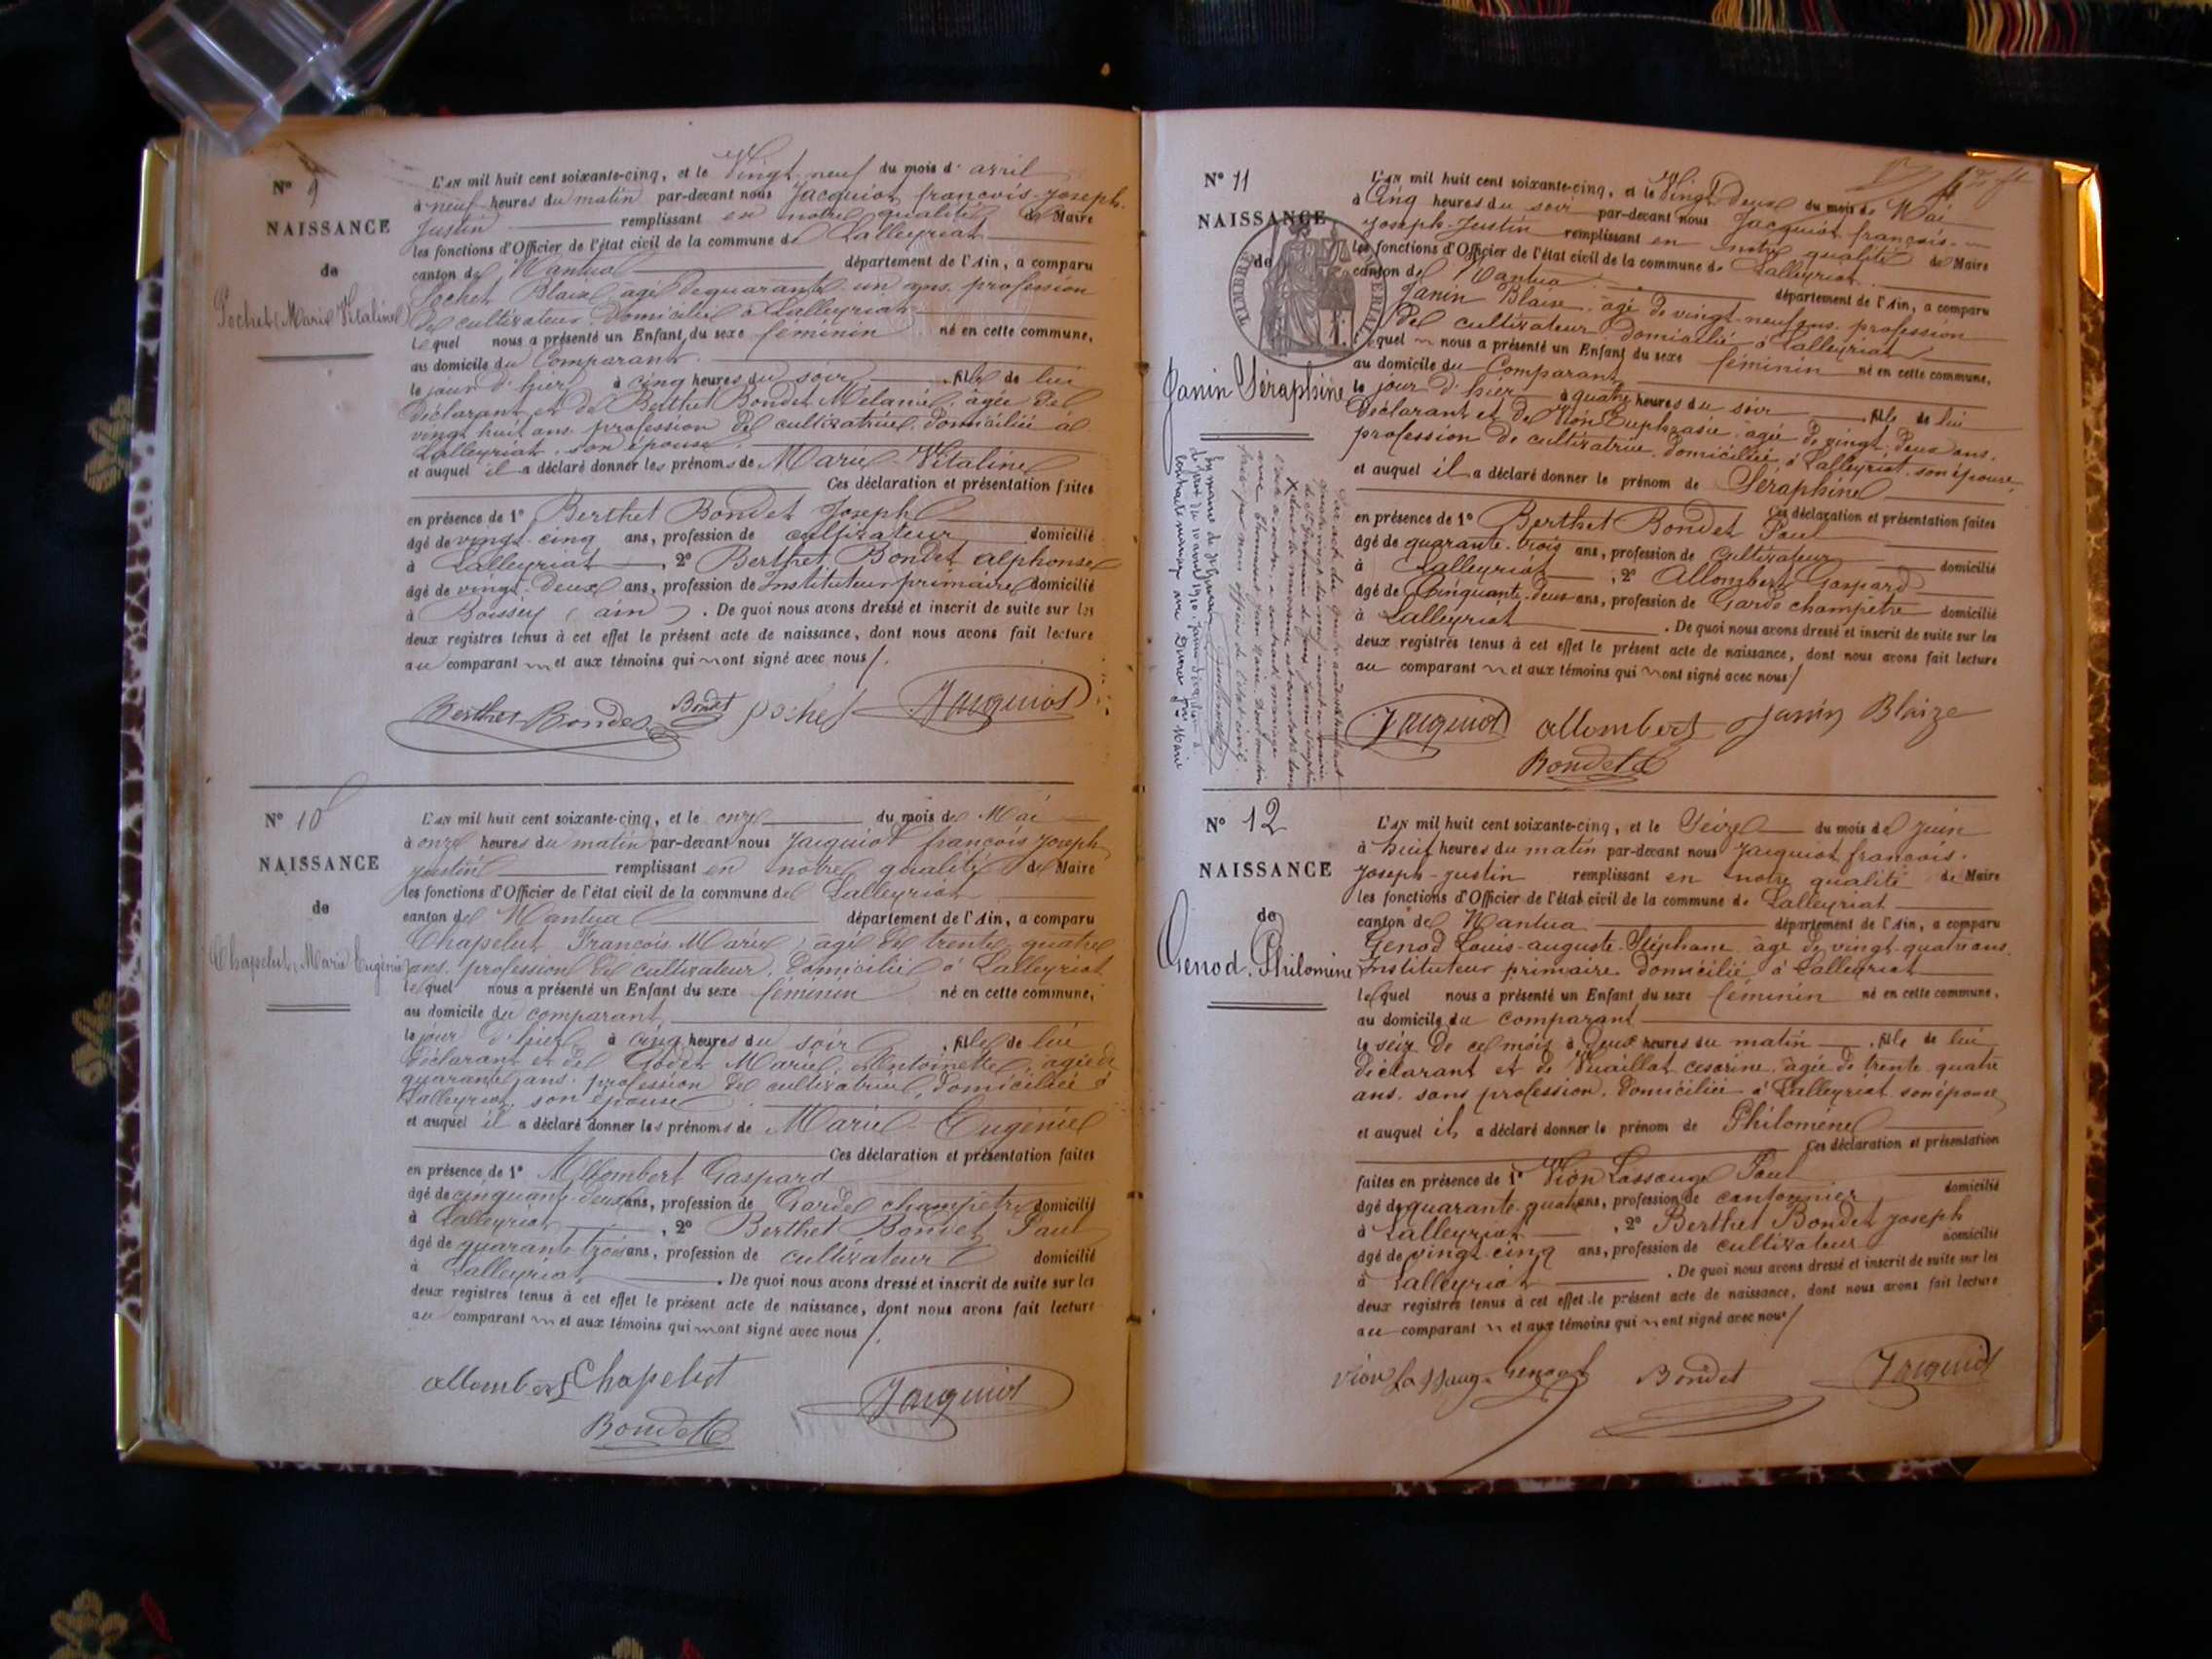 N° 9
NAISSANCE
de
Pochet Marie Vitaline
L'AN mil huit cent soixante-cinq, et le Vingt neuf du mois d'avril
à neuf heures du matin par-devant nous Jacquiot françois-Joseph-
Justin remplissant en notre qualité de Maire
les fonctions d'Officier de l'état civil de la commune de Lalleyriat
canton de Nantua département de l'Ain, a comparu
Pochet Blaise âgé de quarante-un ans profession
de cultivateur domicilié à Lalleyriat
lequel nous a présenté un Enfant du sexe féminin né en cette commune,
au domicile du Comparant
le jour d'hier à cinq heures du soir, fille de lui
déclarant et de Berthet Bondet Mélanie, âgée de
vingt huit ans profession de cultivatrice, domiciliée à
Lalleyriat, son épouse.
et auquel il a déclaré donner les prénoms de Marie Vitaline
Ces déclaration et présentation faites
en présence de 1° Berthet Bondet Joseph
âgé de vingt-cinq ans, profession de cultivateur domicilié
à Lalleyriat, 2° Berthet Bondet alphonse
âgé de vingt-deux ans, profession de Instituteur primaire domicilié
à Boissey (ain). De quoi nous avons dressé et inscrit de suite sur les
deux registres tenus à cet effet le présent acte de naissance, dont nous avons fait lecture
au comparant et aux témoins qui ont signé avec nous /.
Berthet Bondet Bondet pochet Jacquiot
N° 10
NAISSANCE
de
Chapelut, Marie Eugénie
L'AN mil huit cent soixante-cinq, et le onze du mois de Mai
à onze heures du matin par-devant nous Jacquiot françois Joseph
justin remplissant en notre qualité de Maire
les fonctions d'Officier de l'état civil de la commune de Lalleyriat
canton de Nantua département de l'Ain, a comparu
Chapelut François Marie, âgé de trente quatre
ans, profession de cultivateur, domicilié à Lalleyriat
lequel nous a présenté un Enfant du sexe féminin né en cette commune,
au domicile du comparant
le jour d'hier à cinq heures du soir, fille de lui
déclarant et de Godet Marie Antoinette, âgée de
quarante ans, profession de cultivatrice, domiciliée à
Lalleyriat, son épouse
et auquel il a déclaré donner les prénoms de Marie Eugénie
Ces déclaration et présentation faites
en présence de 1° Allombert Gaspard
âgé de cinquante-deux ans, profession de Garde champêtre domicilié
à Lalleyriat, 2° Berthet Bondet Paul
âgé de quarante trois ans, profession de cultivateur domicilié
à Lalleyriat. De quoi nous avons dressé et inscrit de suite sur les
deux registres tenus à cet effet le présent acte de naissance, dont nous avons fait lecture
au comparant et aux témoins qui ont signé avec nous /.
allombert Chapelut Jacquiot
Bondet
N° 11
NAISSANCE
de
TIMBRE IMPERIAL
Janin Séraphine
L'AN mil huit cent soixante-cinq, et le Vingt Deux du mois de Mai
à Cinq heures du soir par-devant nous Jacquiot françois-
Joseph-Justin remplissant en notre qualité de Maire
les fonctions d'Officier de l'état civil de la commune de Lalleyriat
canton de Nantua département de l'Ain, a comparu
Janin Blaise, âgé de vingt-neuf ans profession
de cultivateur domicilié à Lalleyriat
lequel nous a présenté un Enfant du sexe féminin né en cette commune,
au domicile du Comparant
le jour d'hier à quatre heures du soir, fille de lui
déclarant et de Vion Euphrasie âgée de vingt-deux ans,
profession de cultivatrice, domiciliée à Lalleyriat son épouse,
et auquel il a déclaré donner le prénom de Séraphine
Ces déclaration et présentation faites
en présence de 1° Berthet Bondet Paul
âgé de quarante-trois ans, profession de cultivateur domicilié
à Lalleyriat, 2° Allombert Gaspard
âgé de Cinquante-deux ans, profession de Garde champêtre domicilié
à Lalleyriat. De quoi nous avons dressé et inscrit de suite sur les
deux registres tenus à cet effet le présent acte de naissance, dont nous avons fait lecture
au comparant et aux témoins qui ont signé avec nous /
Jacquiot allombert Janin Blaize
Bondet
N° 12
NAISSANCE
de
Genod, Philomène
L'AN mil huit cent soixante-cinq, et le Seize du mois de Juin
à huit heures du matin par-devant nous Jacquiot françois-
Joseph-justin remplissant en notre qualité de Maire
les fonctions d'Officier de l'état civil de la commune de Lalleyriat
canton de Nantua département de l'Ain, a comparu
Genod Louis-auguste-Stéphane âgé de vingt-quatre ans
Instituteur primaire domicilié à Lalleyriat
lequel nous a présenté un Enfant du sexe féminin né en cette commune,
au domicile du comparant
le seize de ce mois à deux heures du matin, fille de lui
déclarant et de Vuaillat cesarine, âgée de trente quatre
ans, sans profession, domiciliée à Lalleyriat son épouse
et auquel il a déclaré donner le prénom de Philomène
Ces déclaration et présentation
faites en présence de 1° Vion Lassauge Paul
âgé de quarante-quatre ans, profession de cantonnier domicilié
à Lalleyriat, 2° Berthet Bondet Joseph
âgé de vingt-cinq ans, profession de cultivateur domicilié
à Lalleyriat. De quoi nous avons dressé et inscrit de suite sur les
deux registres tenus à cet effet le présent acte de naissance, dont nous avons fait lecture
au comparant et aux témoins qui ont signé avec nous /
Genod Bondet Jacquiot